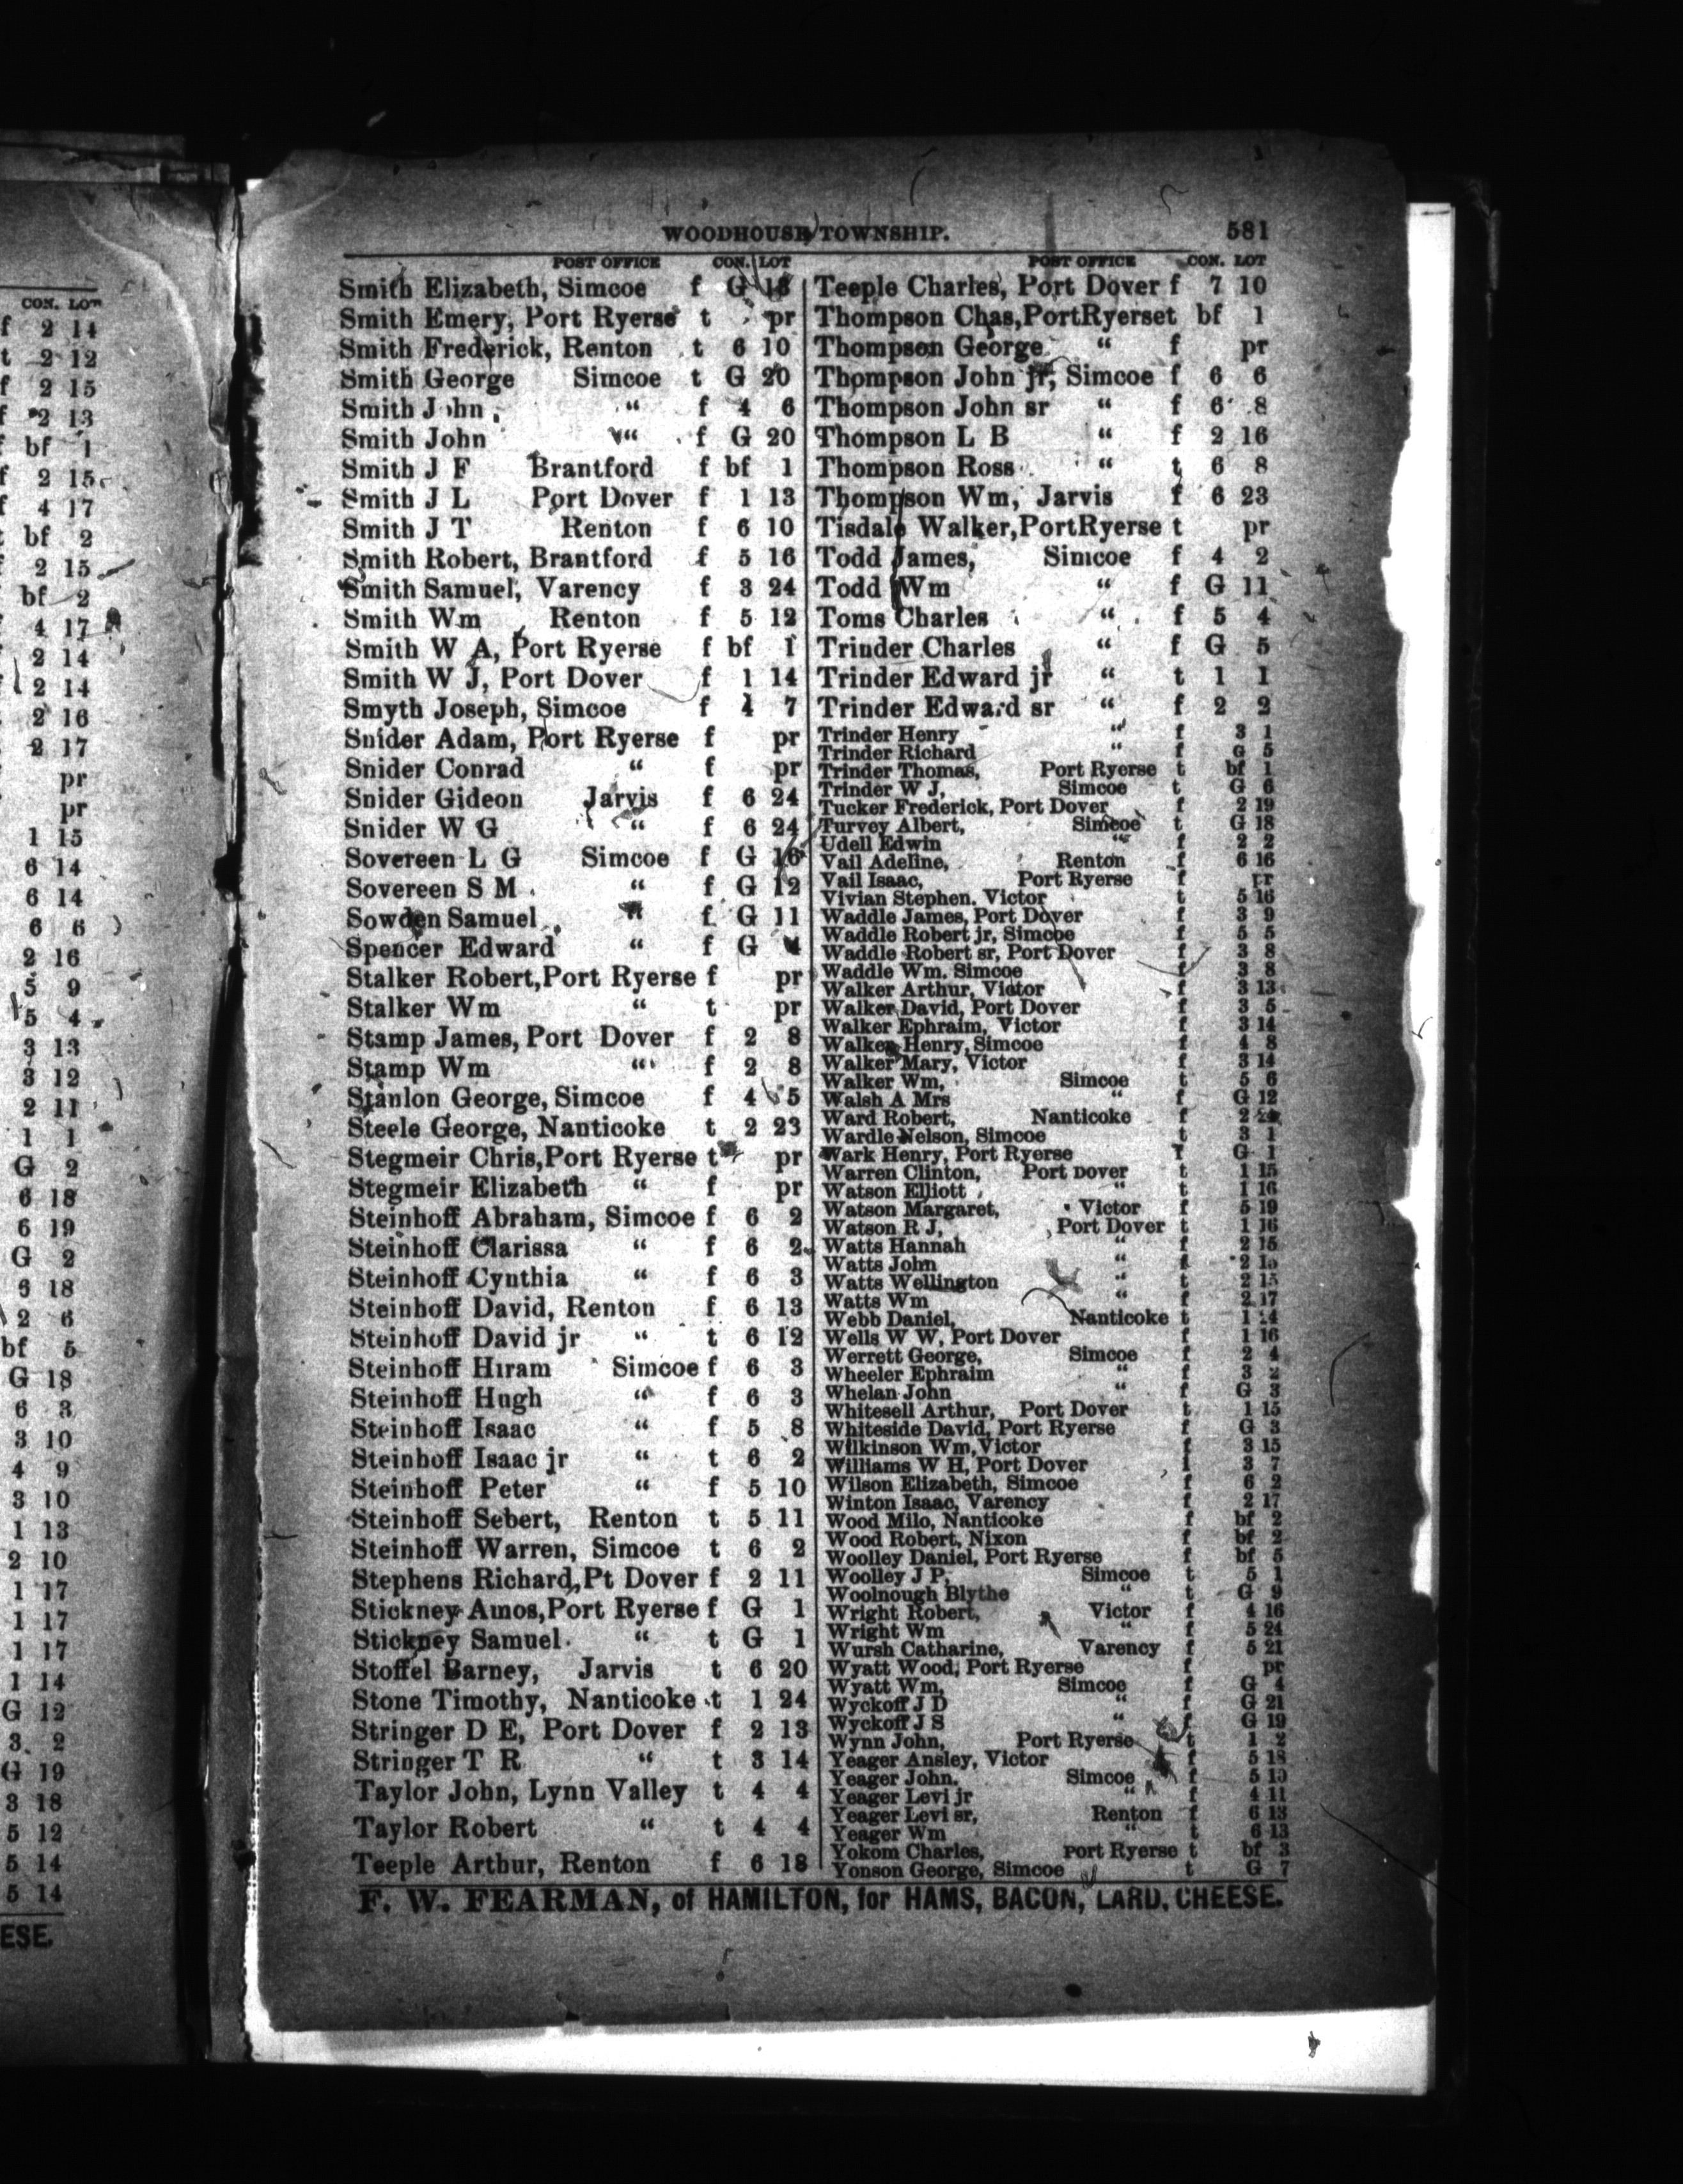 CON. LOT
f 2 14
t 2 12
f 2 15
f 2 13
f bf 1
f 2 15
f 4 17
bf 2
2 15
bf 2
4 17
2 14
2 14
2 16
2 17
pr
pr
1 15
6 14
6 14
6 6
2 16
5 9
5 4
3 13
3 12
2 11
1 1
G 2
6 18
6 19
G 2
6 18
2 6
bf 5
G 18
6 3
3 10
4 9
3 10
1 13
2 10
1 17
1 17
1 17
1 14
G 12
3 2
G 19
3 18
5 12
5 14
5 14
ESE.
WOODHOUSE TOWNSHIP. 581
POST OFFICE CON. LOT
Smith Elizabeth, Simcoe f G
Smith Emery, Port Ryerse t pr
Smith Frederick, Renton t 6 10
Smith George Simcoe t G 20
Smith John " f 4 6
Smith John " f G 20
Smith J F Brantford f bf 1
Smith J L Port Dover f 1 13
Smith J T Renton f 6 10
Smith Robert, Brantford f 5 16
Smith Samuel, Varency f 3 24
Smith Wm Renton f 5 12
Smith W A, Port Ryerse f bf 1
Smith W J, Port Dover f 1 14
Smyth Joseph, Simcoe f 4 7
Snider Adam, Port Ryerse f pr
Snider Conrad " f pr
Snider Gideon Jarvis f 6 24
Snider W G " f 6 24
Sovereen L G Simcoe f G 16
Sovereen S M " f G 12
Sowden Samuel " f G 11
Spencer Edward " f G 4
Stalker Robert,Port Ryerse f pr
Stalker Wm " t pr
Stamp James, Port Dover f 2 8
Stamp Wm " f 2 8
Stanlon George, Simcoe f 4 5
Steele George, Nanticoke t 2 23
Stegmeir Chris,Port Ryerse t pr
Stegmeir Elizabeth " f pr
Steinhoff Abraham, Simcoe f 6 2
Steinhoff Clarissa " f 6 2
Steinhoff Cynthia " f 6 3
Steinhoff David, Renton f 6 13
Steinhoff David jr " t 6 12
Steinhoff Hiram Simcoe f 6 3
Steinhoff Hugh " f 6 3
Steinhoff Isaac " f 5 8
Steinhoff Isaac jr " t 6 2
Steinhoff Peter " f 5 10
Steinhoff Sebert, Renton t 5 11
Steinhoff Warren, Simcoe t 6 2
Stephens Richard,Pt Dover f 2 11
Stickney Amos,Port Ryerse f G 1
Stickney Samuel " t G 1
Stoffel Barney, Jarvis t 6 20
Stone Timothy, Nanticoke t 1 24
Stringer D E, Port Dover f 2 13
Stringer T R " t 3 14
Taylor John, Lynn Valley t 4 4
Taylor Robert " t 4 4
Teeple Arthur, Renton f 6 18
POST OFFICE CON. LOT
Teeple Charles, Port Dover f 7 10
Thompson Chas,PortRyerset bf 1
Thompson George " f pr
Thompson John jr, Simcoe f 6 6
Thompson John sr " f 6 8
Thompson L B " f 2 16
Thompson Ross " t 6 8
Thompson Wm, Jarvis f 6 23
Tisdale Walker,PortRyerse t pr
Todd James, Simcoe f 4 2
Todd Wm " f G 11
Toms Charles " f 5 4
Trinder Charles " f G 5
Trinder Edward jr " t 1 1
Trinder Edward sr " f 2 2
Trinder Henry " f 3 1
Trinder Richard " f G 5
Trinder Thomas, Port Ryerse t bf 1
Trinder W J, Simcoe t G 6
Tucker Frederick, Port Dover f 2 19
Turvey Albert, Simcoe t G 18
Udell Edwin " f 2 2
Vail Adeline, Renton f 6 16
Vail Isaac, Port Ryerse f pr
Vivian Stephen. Victor t 5 16
Waddle James, Port Dover f 3 9
Waddle Robert jr, Simcoe f 5 5
Waddle Robert sr, Port Dover f 3 8
Waddle Wm. Simcoe f 3 8
Walker Arthur, Victor f 3 13
Walker David, Port Dover f 3 5
Walker Ephraim, Victor f 3 14
Walker Henry, Simcoe f 4 8
Walker Mary, Victor f 3 14
Walker Wm, Simcoe t 5 6
Walsh A Mrs " f G 12
Ward Robert, Nanticoke f 2
Wardle Nelson, Simcoe t 3 1
Wark Henry, Port Ryerse f G 1
Warren Clinton, Port Dover t 1 15
Watson Elliott " t 1 16
Watson Margaret, Victor f 5 19
Watson R J, Port Dover t 1 16
Watts Hannah " f 2 15
Watts John " f 2 15
Watts Wellington " t 2 15
Watts Wm " f 2 17
Webb Daniel, Nanticoke t 1 14
Wells W W, Port Dover f 1 16
Werrett George, Simcoe f 2 4
Wheeler Ephraim " f 3 2
Whelan John " f G 3
Whitesell Arthur, Port Dover t 1 15
Whiteside David, Port Ryerse f G 3
Wilkinson Wm,Victor f 3 15
Williams W H, Port Dover f 3 7
Wilson Elizabeth, Simcoe f 6 2
Winton Isaac, Varency f 2 17
Wood Milo, Nanticoke f bf 2
Wood Robert, Nixon f bf 2
Woolley Daniel, Port Ryerse f bf 5
Woolley J P, Simcoe t 5 1
Woolnough Blythe " t G 9
Wright Robert, Victor f 4 16
Wright Wm " f 5 24
Wursh Catharine, Varency f 5 21
Wyatt Wood, Port Ryerse f pr
Wyatt Wm, Simcoe f G 4
Wyckoff J D " f G 21
Wyckoff J S " f G 19
Wynn John, Port Ryerse t 1 2
Yeager Ansley, Victor f 5 18
Yeager John. Simcoe f 5 10
Yeager Levi jr " f 4 11
Yeager Levi sr, Renton f 6 13
Yeager Wm " t 6 13
Yokom Charles, Port Ryerse t bf 3
Yonson George, Simcoe t G 7
F. W. FEARMAN, of HAMILTON, for HAMS, BACON, LARD, CHEESE.